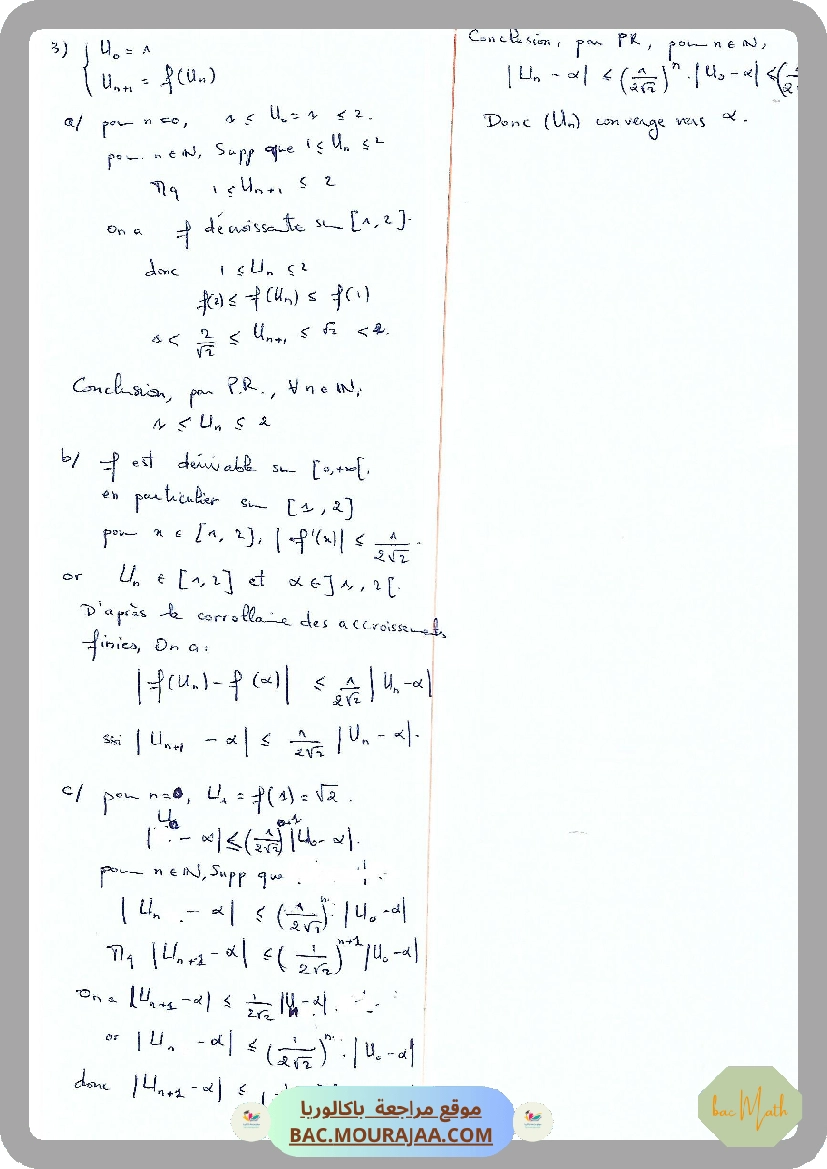 3) { U₀ = 1
Uₙ₊₁ = f(Uₙ)
a/ pour n=0, 1 ≤ U₀=1 ≤ 2.
pour n∈ℕ, Supp que 1 ≤ Uₙ ≤ 2
Mq 1 ≤ Uₙ₊₁ ≤ 2
On a f décroissante sur [1,2].
donc 1 ≤ Uₙ ≤ 2
f(2) ≤ f(Uₙ) ≤ f(1)
1 < 2/√2 ≤ Uₙ₊₁ ≤ √2 < 2.
Conclusion, par P.R., ∀ n ∈ ℕ,
1 ≤ Uₙ ≤ 2
b/ f est dérivable sur [0,+∞[,
en particulier sur [1,2]
pour x ∈ [1,2], |f'(x)| ≤ 1/(2√2).
or Uₙ ∈ [1,2] et α ∈ ]1,2[.
D'après le corrollaire des accroissements
finies, On a:
|f(Uₙ) - f(α)| ≤ 1/(2√2) |Uₙ - α|
|Uₙ₊₁ - α| ≤ 1/(2√2) |Uₙ - α|.
c/ pour n=0, U₁ = f(1) = √2.
- α| ≤ (1/(2√2)) |U₀ - α|.
pour n∈ℕ, Supp que
|Uₙ - α| ≤ (1/(2√2))ⁿ |U₀ - α|
Mq |Uₙ₊₁ - α| ≤ (1/(2√2))ⁿ⁺¹ |U₀ - α|
On a |Uₙ₊₁ - α| ≤ 1/(2√2) |Uₙ - α|.
or |Uₙ - α| ≤ (1/(2√2))ⁿ . |U₀ - α|
donc |Uₙ₊₁ - α| ≤
Conclusion, par PR, pour n∈ℕ,
|Uₙ - α| ≤ (1/(2√2))ⁿ . |U₀ - α| ≤
Donc (Uₙ) converge vers α.
موقع مراجعة باكالوريا
BAC.MOURAJAA.COM
bac Math